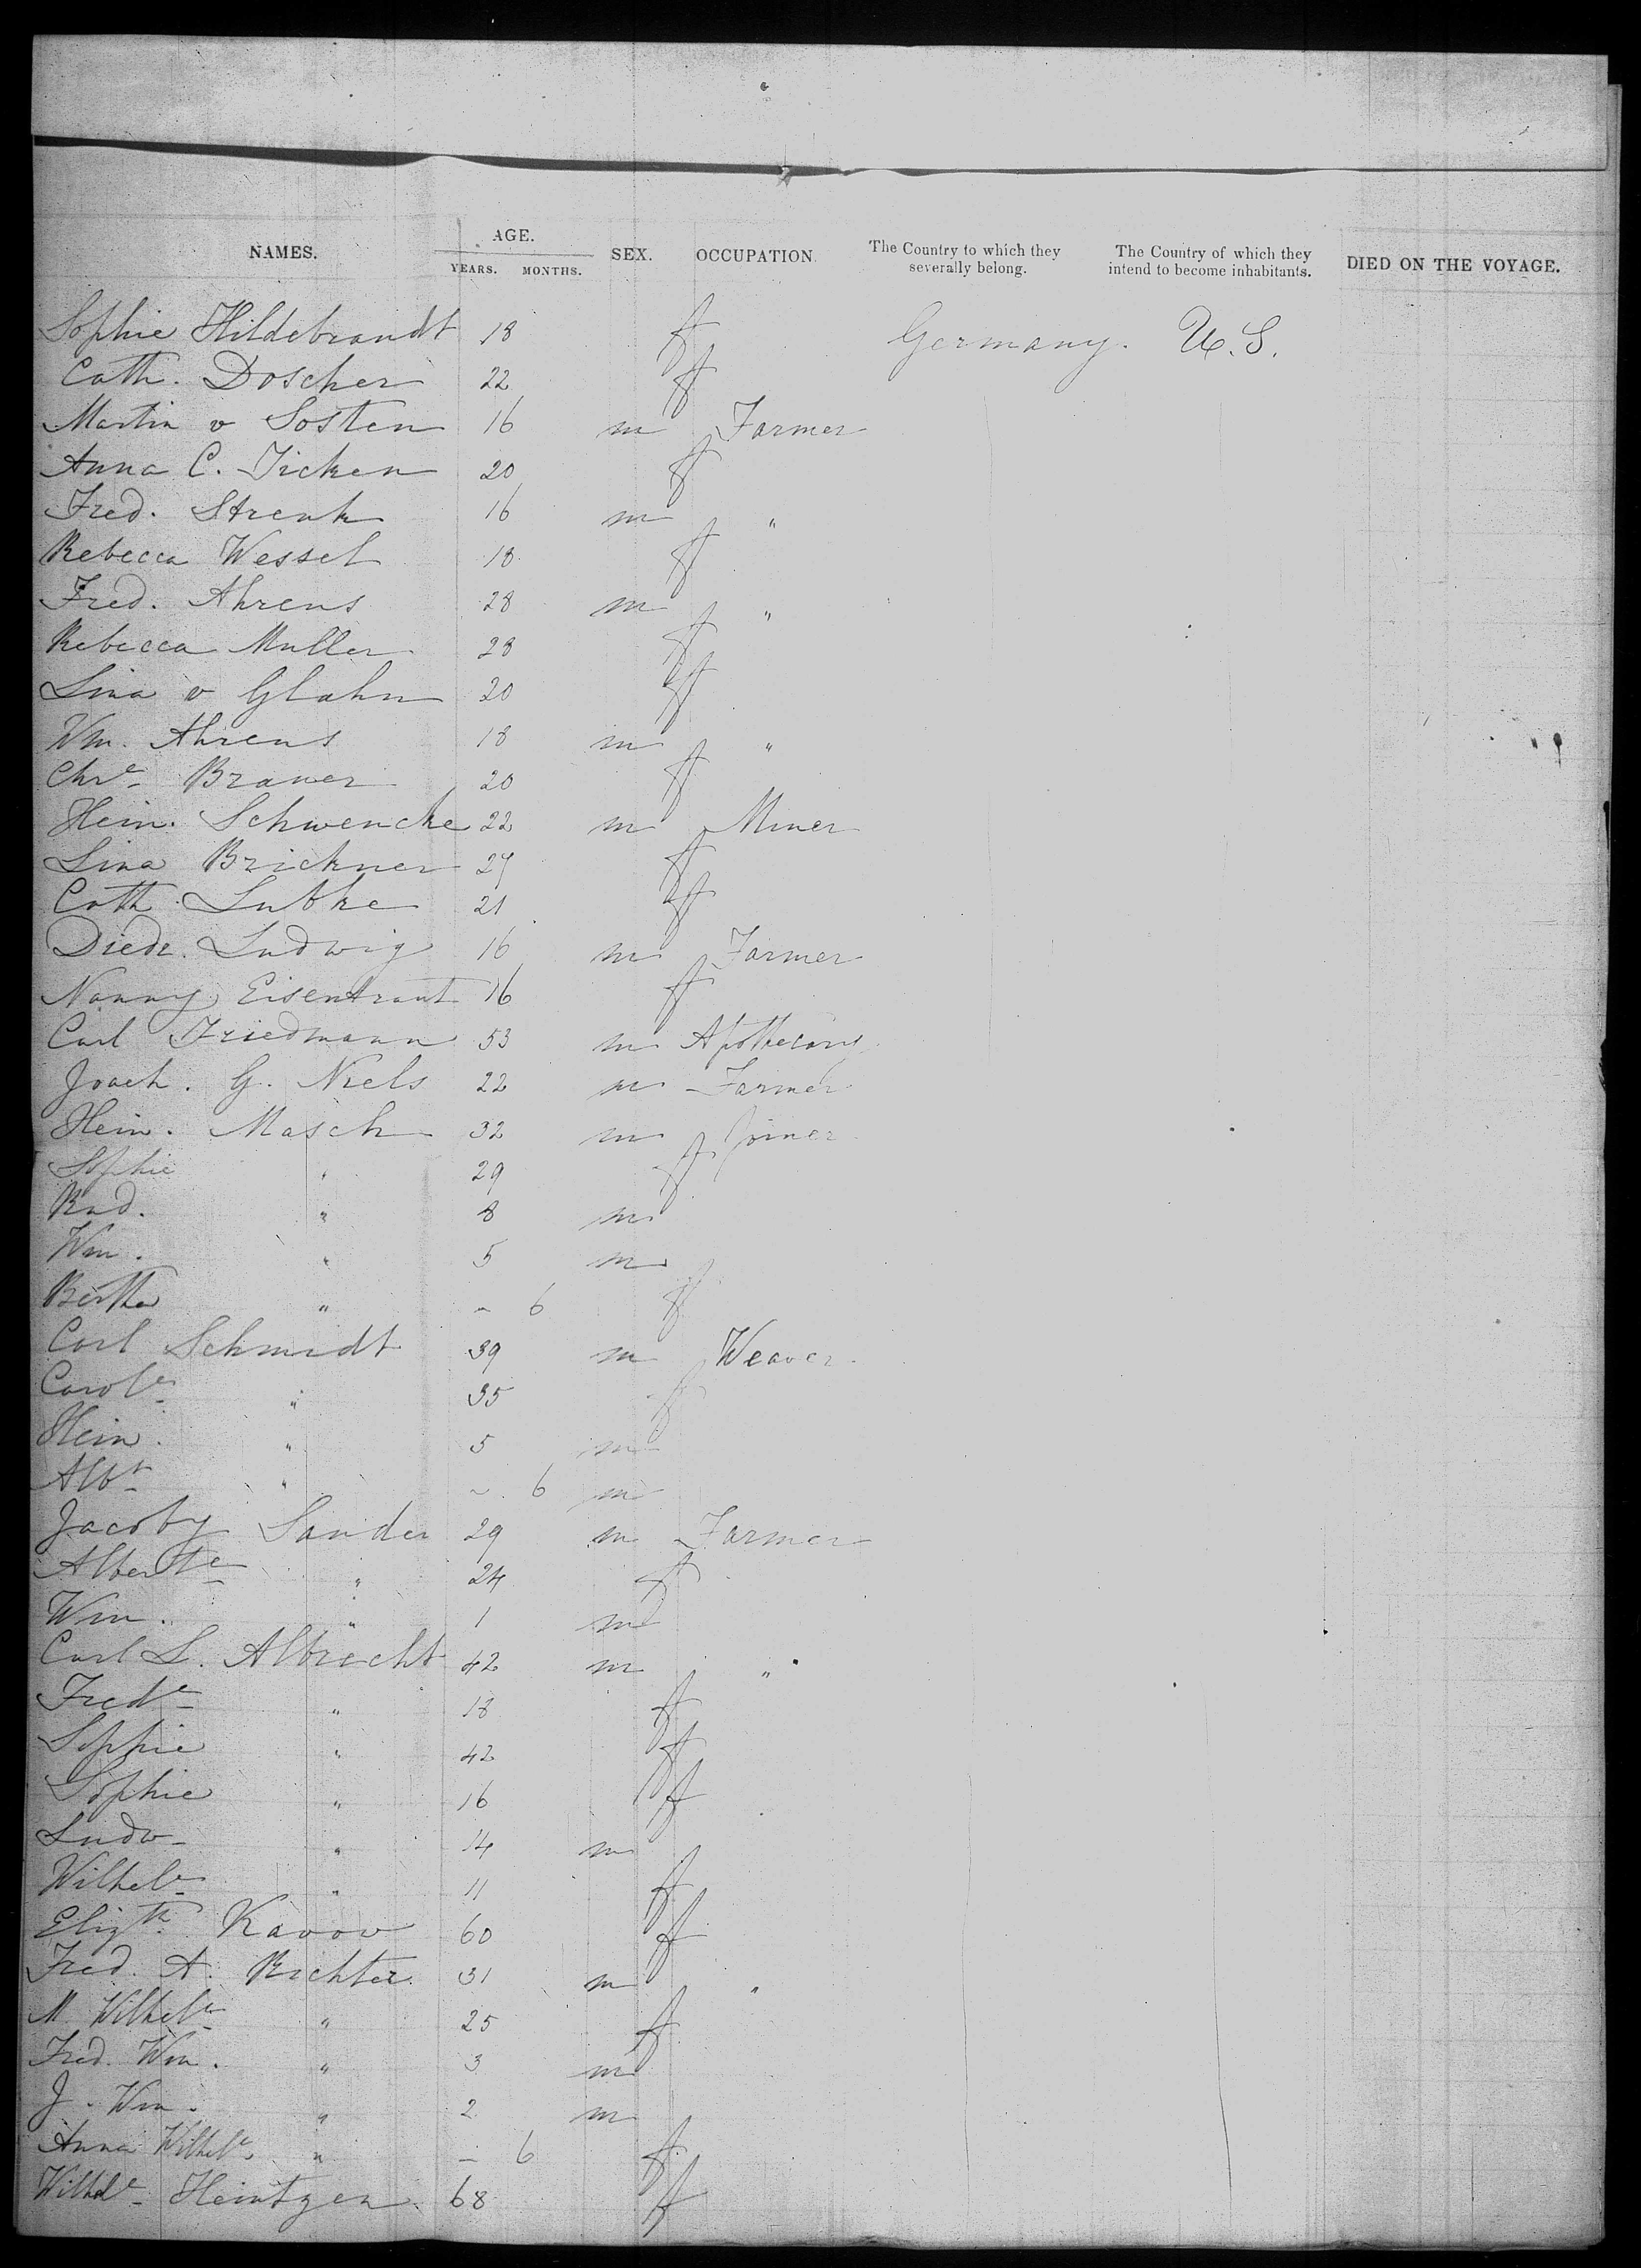 NAMES. AGE. SEX. OCCUPATION. The Country to which they severally belong. The Country of which they intend to become inhabitants. DIED ON THE VOYAGE.
YEARS. MONTHS.
Sophie Hildebrandt 18 f Germany. U.S.
Cath. Doscher 22 f
Martin v Sosten 16 m Farmer
Anna C. Ticken 20 f
Fred. Strenk 16 m "
Rebecca Wessel 18 f
Fred. Ahrens 28 m "
Rebecca Muller 28 f
Lina v Glahn 20 f
Wm. Ahrens 18 m "
Chre Brauer 20 f
Hein. Schwencke 22 m Miner
Lina Brickner 27 f
Cath. Lubke 21 f
Diedr. Ludwig 16 m Farmer
Nanny Eisentraut 16 f
Carl Friedmann 53 m Apothecary
Joach. G. Niels 22 m Farmer
Hein. Masch 32 m Joiner
Sophie " 29 f
Rud. " 8 m
Wm. " 5 m
Bertha " - 6 f
Carl Schmidt 39 m Weaver
Carole " 35 f
Hein. " 5 m
Albt " - 6 m
Jacoby Sander 29 m Farmer
Alberte " 24 f
Wm. " 1 m
Carl L. Albrecht 42 m "
Frede " 18 f
Sophie " 42 f
Sophie " 16 f
Ludw " 14 m
Wilhele " 11 f
Elizth Kavow 60 f
Fred. A. Richter 31 m "
M Wilhele " 25 f
Fred. Wm. " 3 m
J. Wm. " 2 m
Anna Wilhele " - 6 f
Wilhele Heintzen 68 f